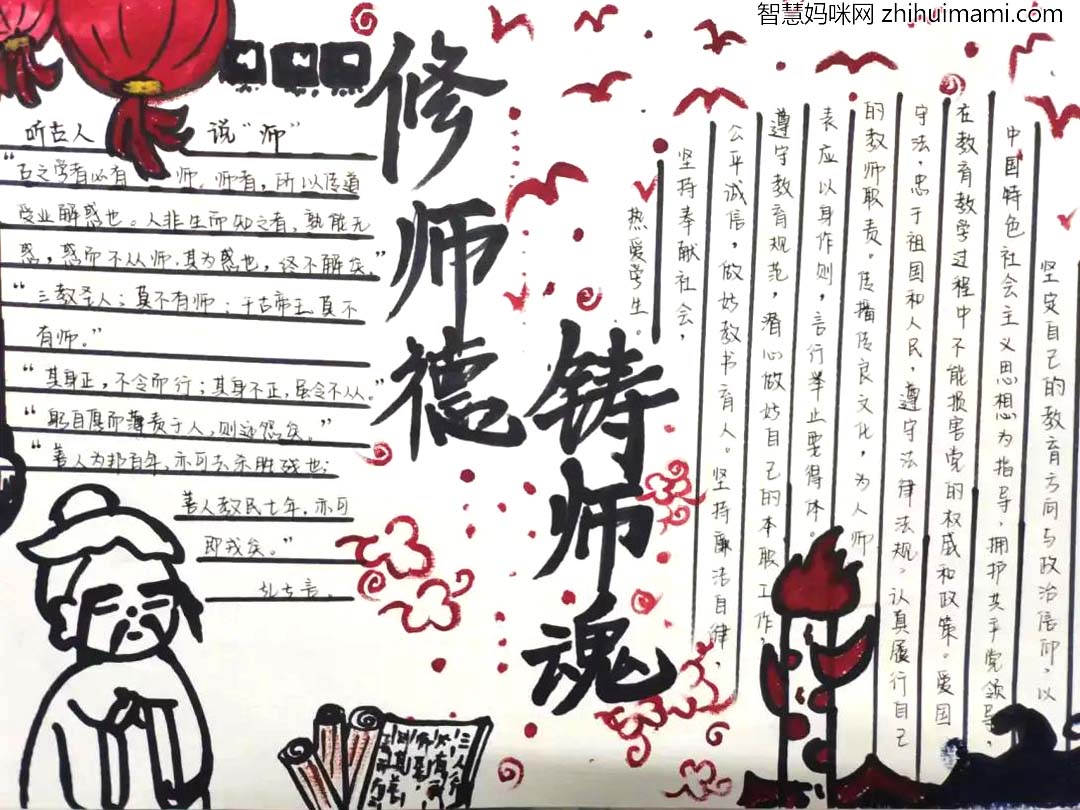 智慧妈咪网 zhihuimami.com
修师德
铸师魂
听古人 说“师”
“古之学者必有 师. 师者, 所以传道
受业解惑也。人非生而知之者, 孰能无
惑, 惑而不从师. 其为惑也, 终不解矣.”
“三教圣人; 莫不有师; 千古帝王. 莫不
有师。”
“其身正, 不令而行; 其身不正, 虽令不从。”
“躬自厚而薄责于人, 则远怨矣。”
“善人为邦百年, 亦可去杀胜残也;
善人教民七年, 亦可
即戎矣。”
坚定自己的教育方向与政治信仰, 以
中国特色社会主义思想为指导, 拥护共产党领导,
在教育教学过程中不能损害党的权威和政策。爱国
守法, 忠于祖国和人民, 遵守法律法规, 认真履行自己
的教师职责。传播优良文化, 为人师
表应以身作则, 言行举止要得体。
遵守教育规范, 潜心做好自己的本职工作,
公平诚信, 做好教书育人。坚持廉洁自律,
坚持奉献社会,
热爱学生。
三人行